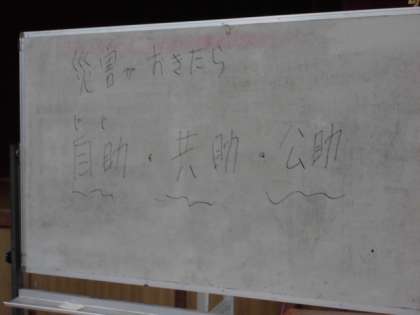 災害がおきたら
じじょ
自助・共助・公助